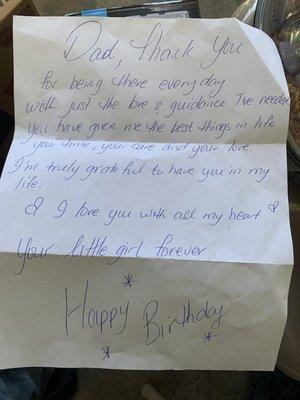 Dad, thank you
for being there everyday
with just the love & guidance I've needed
you have given me the best things in life
your time, your care and your love.
I'm truly grateful to have you in my
life.
♡ I love you with all my heart ♡
Your little girl forever
*
Happy Birthday
* *